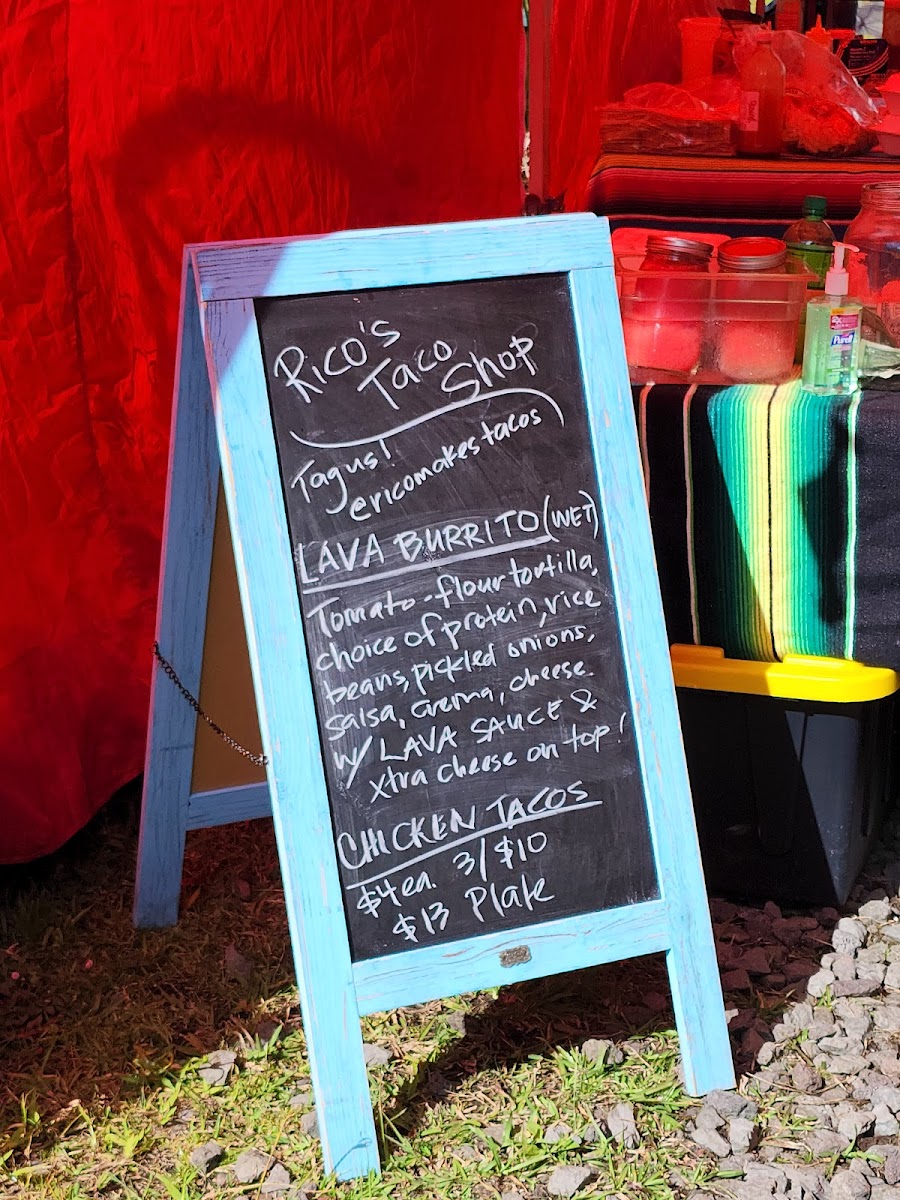 Rico's
Taco
Shop
Tagus!
@ricomakestacos
LAVA BURRITO (WET)
Tomato-flour tortilla,
choice of protein, rice
beans, pickled onions,
salsa, crema, cheese
w/ LAVA SAUCE &
xtra cheese on top!
CHICKEN TACOS
$4ea. 3/$10
$13 Plate
Purell